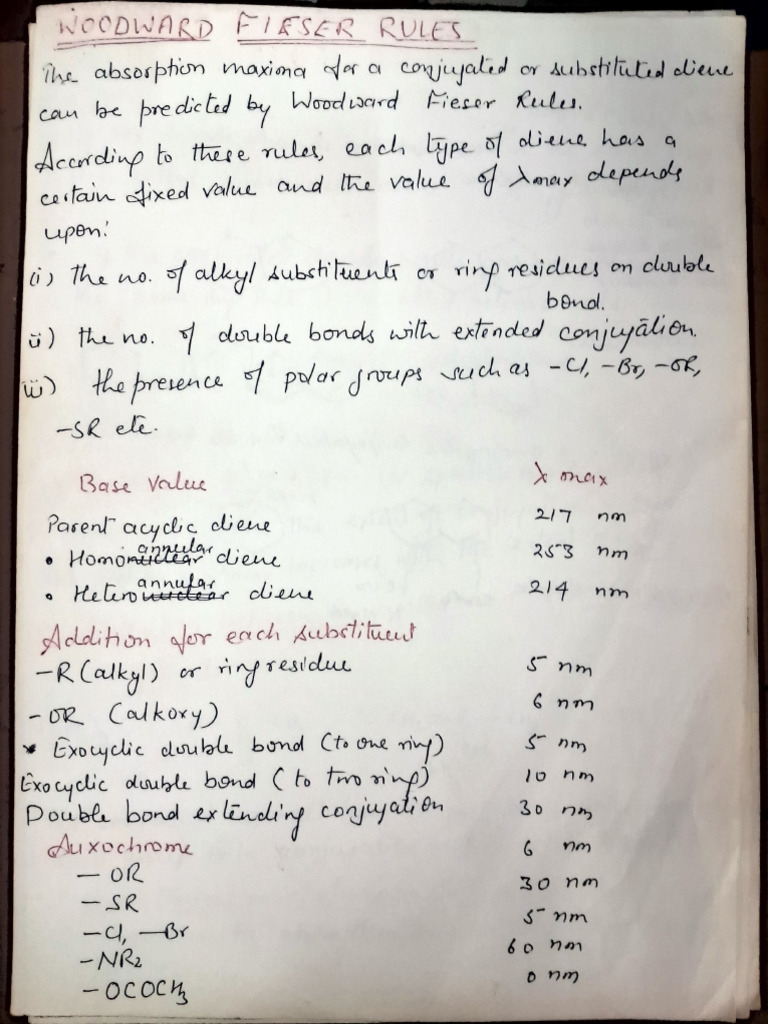 WOODWARD FIESER RULES
The absorption maxima for a conjugated or substituted diene
can be predicted by Woodward Fieser Rules.
According to these rules, each type of diene has a
certain fixed value and the value of λmax depends
upon:
(i) the no. of alkyl substituents or ring residues on double
bond.
ii) the no. of double bonds with extended conjugation.
iii) the presence of polar groups such as -Cl, -Br, -OR,
-SR etc.
Base Value λ max
Parent acyclic diene 217 nm
• Homoannular diene 253 nm
• Heteroannular diene 214 nm
Addition for each substituent
-R (alkyl) or ring residue 5 nm
-OR (alkoxy) 6 nm
* Exocyclic double bond (to one ring) 5 nm
Exocyclic double bond (to two ring) 10 nm
Double bond extending conjugation 30 nm
Auxochrome
- OR 6 nm
- SR 30 nm
- Cl, -Br 5 nm
- NR2 60 nm
- OCOCH3 0 nm